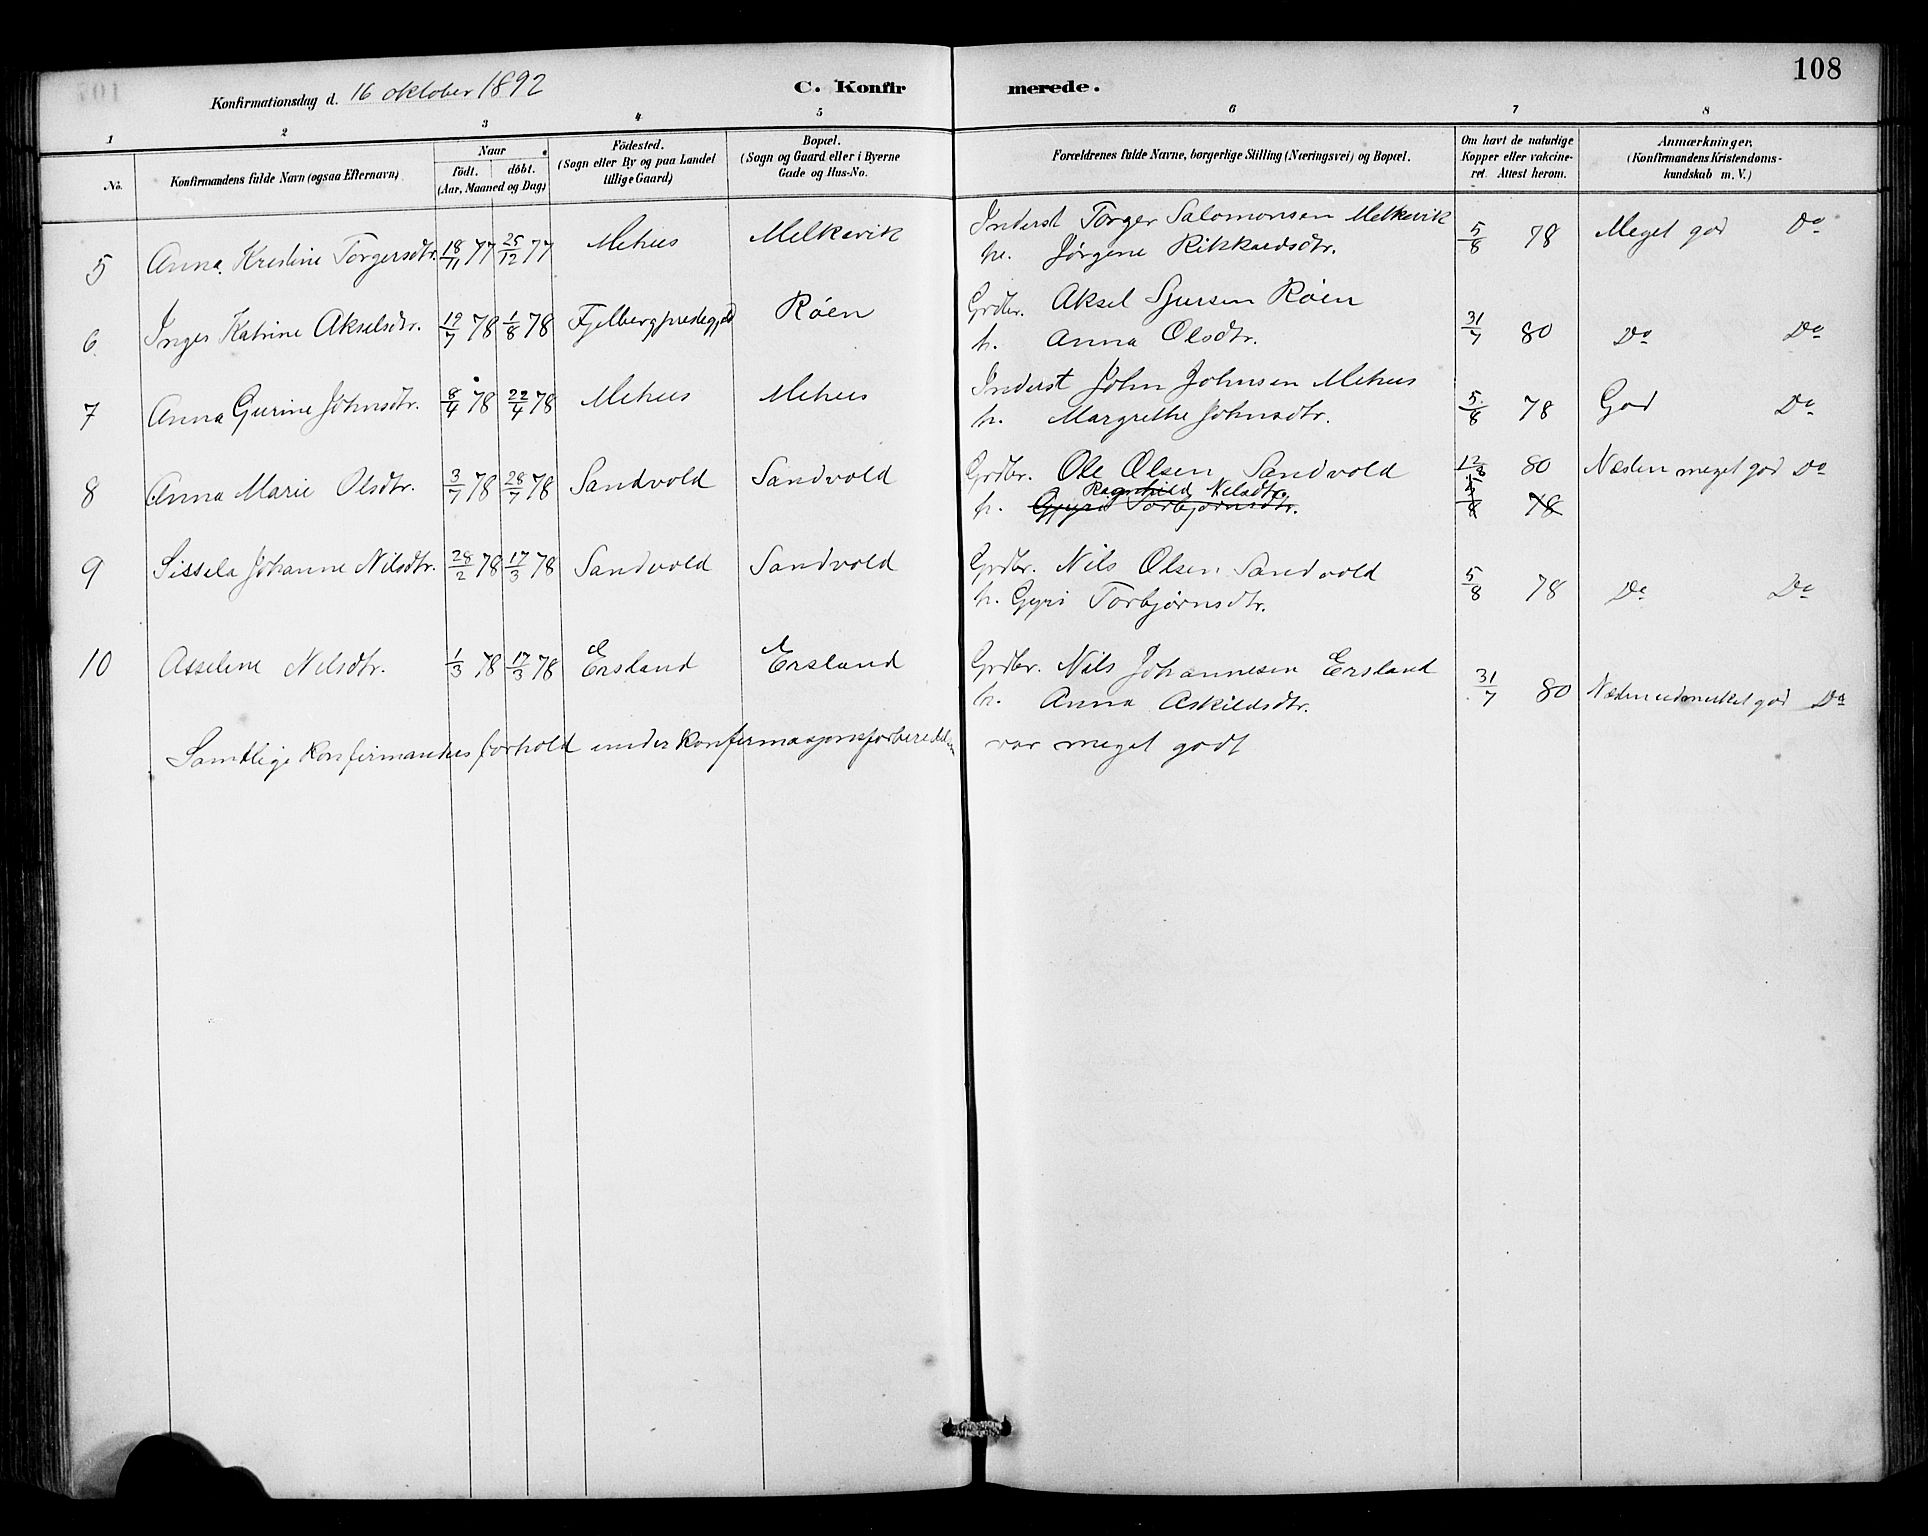 108
Konfirmationsdag d. 16 oktober 1892 C. Konfirmerede.
1 2 3 4 5 6 7 8
No. Konfirmandens fulde Navn (ogsaa Efternavn) Naar födt. döbt. (Aar, Maaned og Dag) Födested. (Sogn eller By og paa Landet tillige Gaard) Bopæl. (Sogn og Gaard eller i Byerne Gade og Hus-No. Forældrenes fulde Navne, borgerlige Stilling (Næringsvei) og Bopæl. Om havt de naturlige Kopper eller vakcineret. Attest herom. Anmærkninger. (Konfirmandens Kristendomskundskab m. V.)
5 Anna Kristine Torgersdtr. 18/11 77 25/12 77 Mehus Melkevik Inderst Torger Salomonsen Melkevik 5/8 78 Meget god Do
h. Jørgene Rikkardsdtr.
6 Inger Katrine Akselsdtr. 19/7 78 1/8 78 Fjelbergprestegjeld Røen Grdbr. Aksel Sjursen Røen 31/7 80 Do Do
h. Anna Olsdtr.
7 Anna Gurine Johnsdtr. 8/4 78 22/4 78 Mehus Mehus Inderst John Johnsen Mehus 5/8 78 God Do
h. Margrethe Johnsdtr.
8 Anna Marie Olsdtr. 3/7 78 28/7 78 Sandvold Sandvold Grdbr. Ole Olsen Sandvold 12/8 80 Næsten meget god Do
Ragnhild Nelsdtr.
h. Gjyri Torbjørnsdtr. 5/8 78
9 Sissela Johanne Nilsdtr. 28/2 78 17/3 78 Sandvold Sandvold Grdbr. Nils Olsen Sandvold 5/8 78 Do Do
h. Gyri Torbjørnsdtr.
10 Asseline Nelsdtr. 1/3 78 17/3 78 Ersland Ersland Grdbr. Nils Johannesen Ersland 31/7 80 Næsten udmerket god Do
h. Anna Askildsdtr.
Samtlige Konfirmandes forhold under konfirmasjonsforberedelsen var meget godt